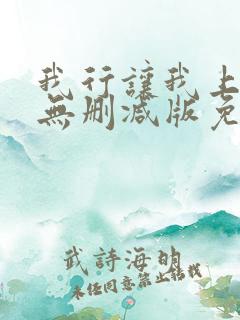 我行讓我上
無刪减版免
武詩海的
未经同意禁止转载